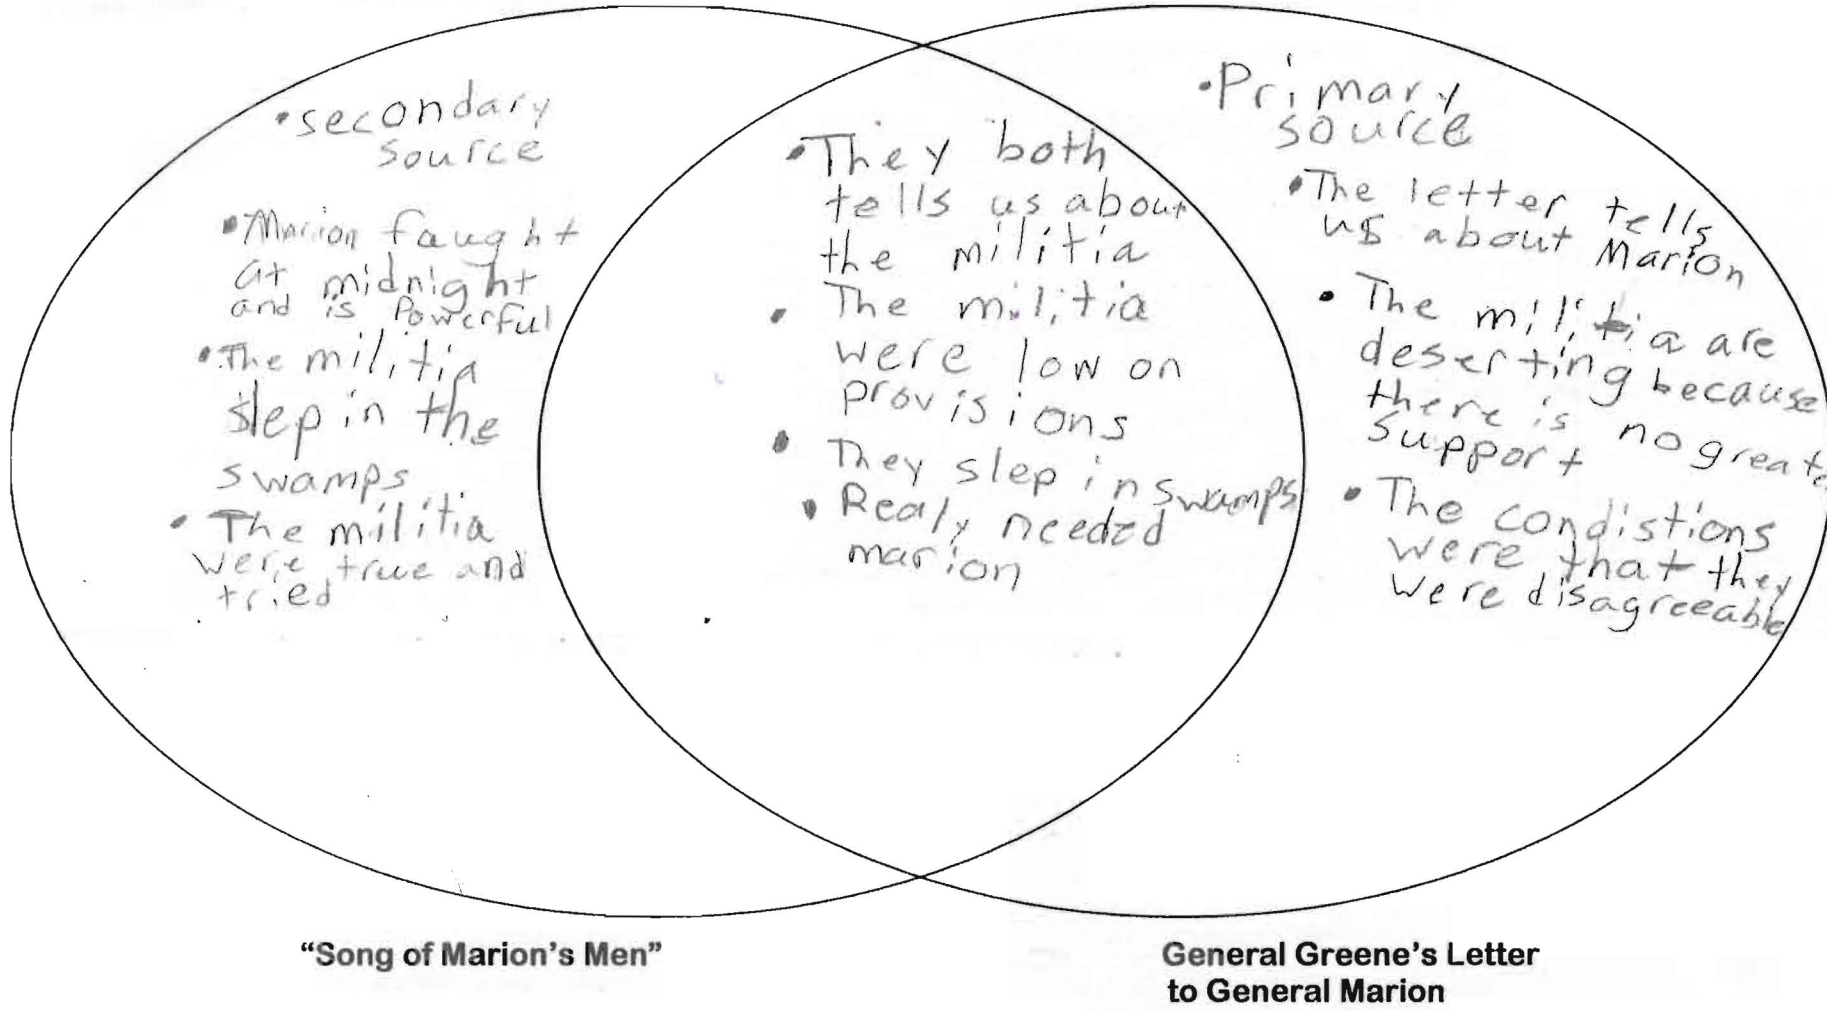 •secondary
source
•Marion faught
at midnight
and is Powerful
•The militia
slep in the
swamps
• The militia
were true and
tried
•They both
tells us about
the militia
• The militia
were low on
provisions
• They slep in swamps
• Realy needed
marion
•Primary
source
•The letter tells
us about Marion
• The militia are
deserting because
there is no great
support
• The condistions
were that they
were disagreeable
“Song of Marion’s Men”
General Greene’s Letter
to General Marion